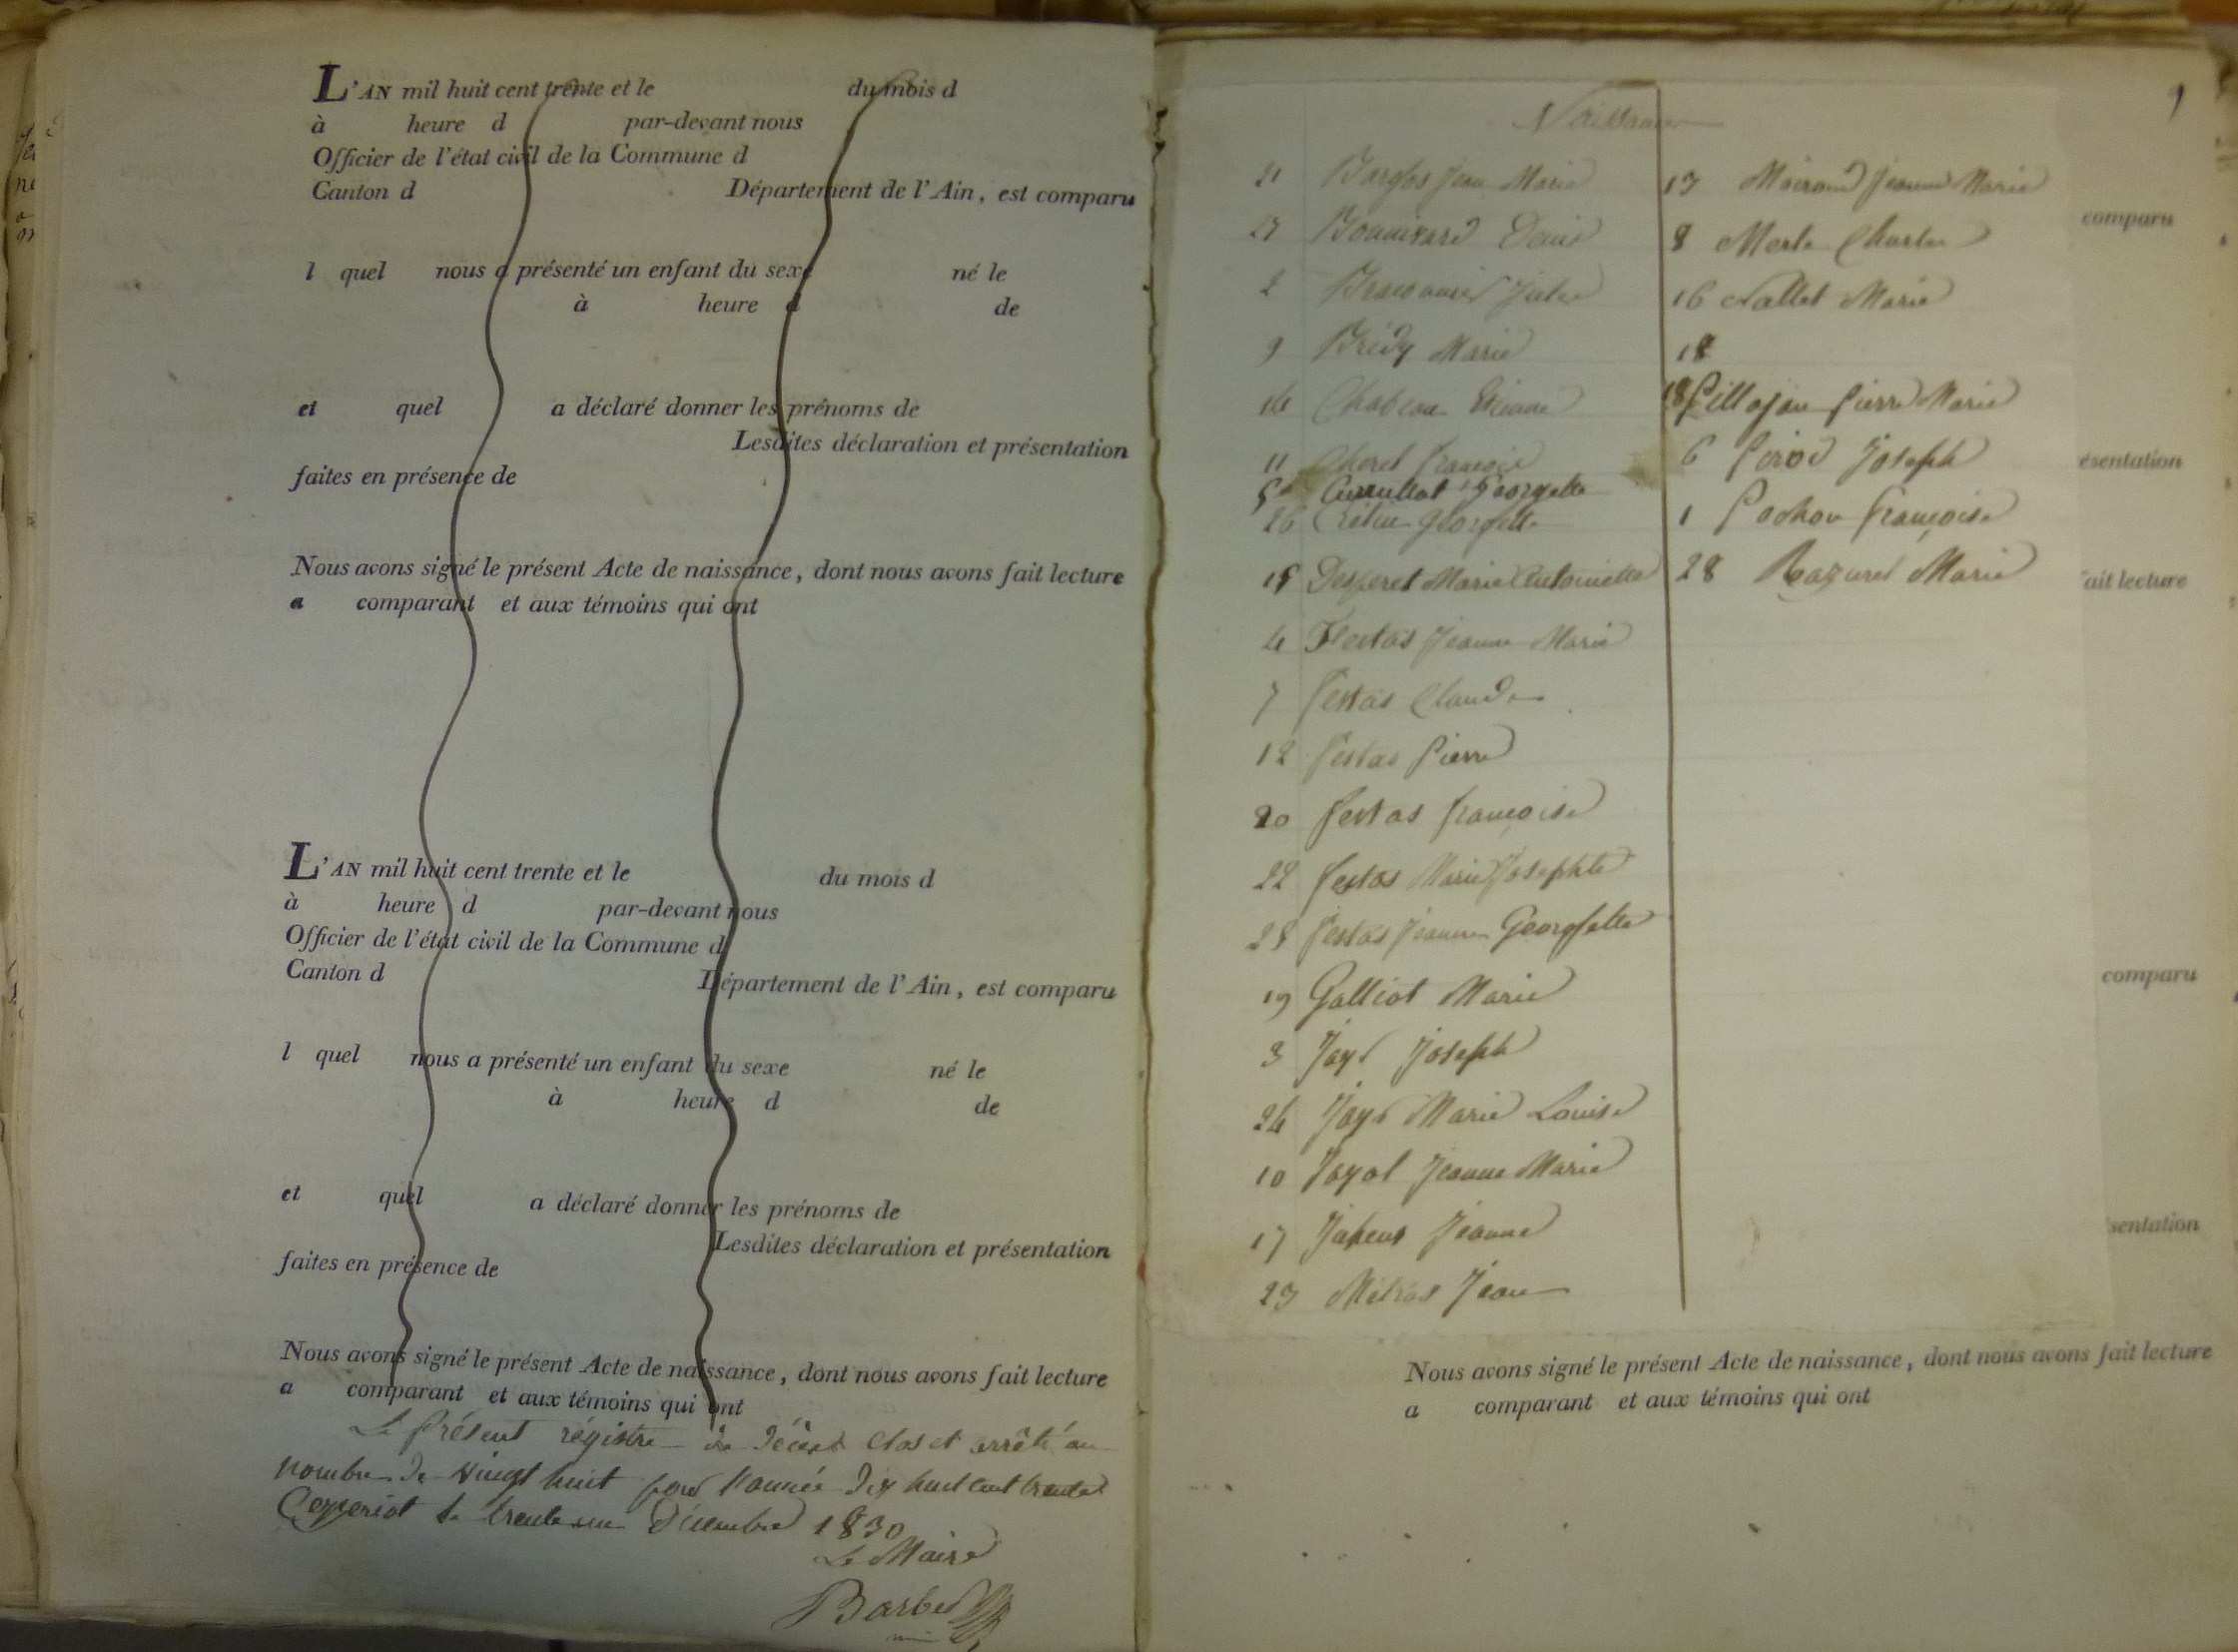 L'AN mil huit cent trente et le du mois d
à heure d par-devant nous
Officier de l'état civil de la Commune d
Canton d Département de l'Ain, est comparu
l quel nous a présenté un enfant du sexe né le
à heure d de
et quel a déclaré donner les prénoms de
Lesdites déclaration et présentation
faites en présence de
Nous avons signé le présent Acte de naissance, dont nous avons fait lecture
a comparant et aux témoins qui ont
L'AN mil huit cent trente et le du mois d
à heure d par-devant nous
Officier de l'état civil de la Commune d
Canton d Département de l'Ain, est comparu
l quel nous a présenté un enfant du sexe né le
à heure d de
et quel a déclaré donner les prénoms de
Lesdites déclaration et présentation
faites en présence de
Nous avons signé le présent Acte de naissance, dont nous avons fait lecture
a comparant et aux témoins qui ont
Le Présent régistre clos et arrêté au
nombre de vingt huit pour l'année dix huit cent trente
Ceyzeriat le trente un Décembre 1830
Le Maire
Barbet
Naissances
21 Jean Marie
27 Denis
2
9 Brédy Marie
14 Etienne
11 François
5 Georgette
26 Georgette
15 Marie Antoinette
4 Festas Jeanne Marie
7 Festas Claude
12 Festas Pierre
20 Festas françoise
22 Festas Marie Josephte
25 Festas Jeanne Georgette
19 Galliot Marie
3 Jayr Joseph
24 Jayr Marie Louise
10 Jayol Jeanne Marie
17 Jeanne
23 Métras Jean
13 Jeanne Marie
8 Merle Charles
16 Nallet Marie
18
18 Pierre Marie
6 Pirod Joseph
1 Pochon françoise
28 Razurel Marie
comparu
ésentation
ait lecture
comparu
sentation
Nous avons signé le présent Acte de naissance, dont nous avons fait lecture
a comparant et aux témoins qui ont